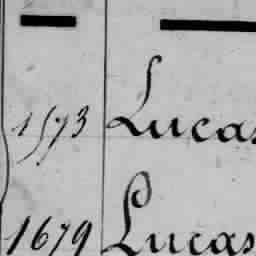 1573 Lucas
1679 Lucas